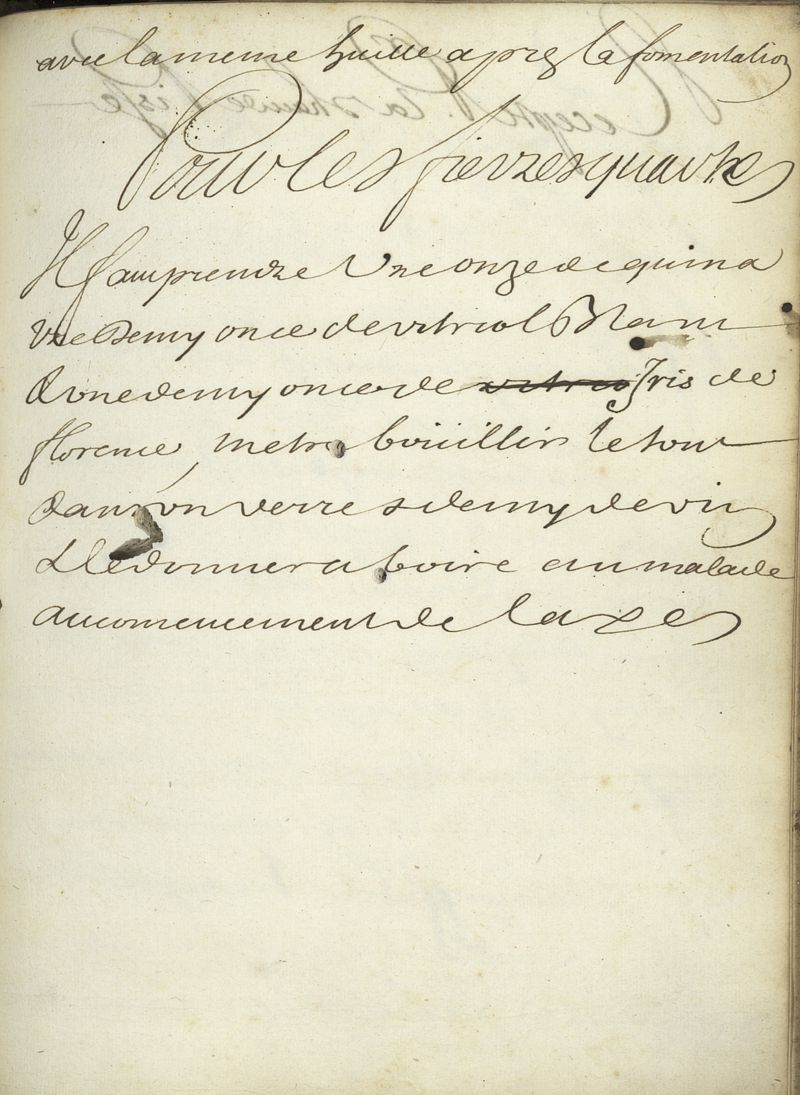 avec la meme huille aprez la fomentation
Pour les fievres quartes
Il faut prendre Une onze de quina
Vne Demy once de vitriol Blanc
& vne demy once de vitreo Iris de
florence, metre boüillir le tout
dans vn verre & demy de vin
& le donner a boire au malade
au comencement de laxes